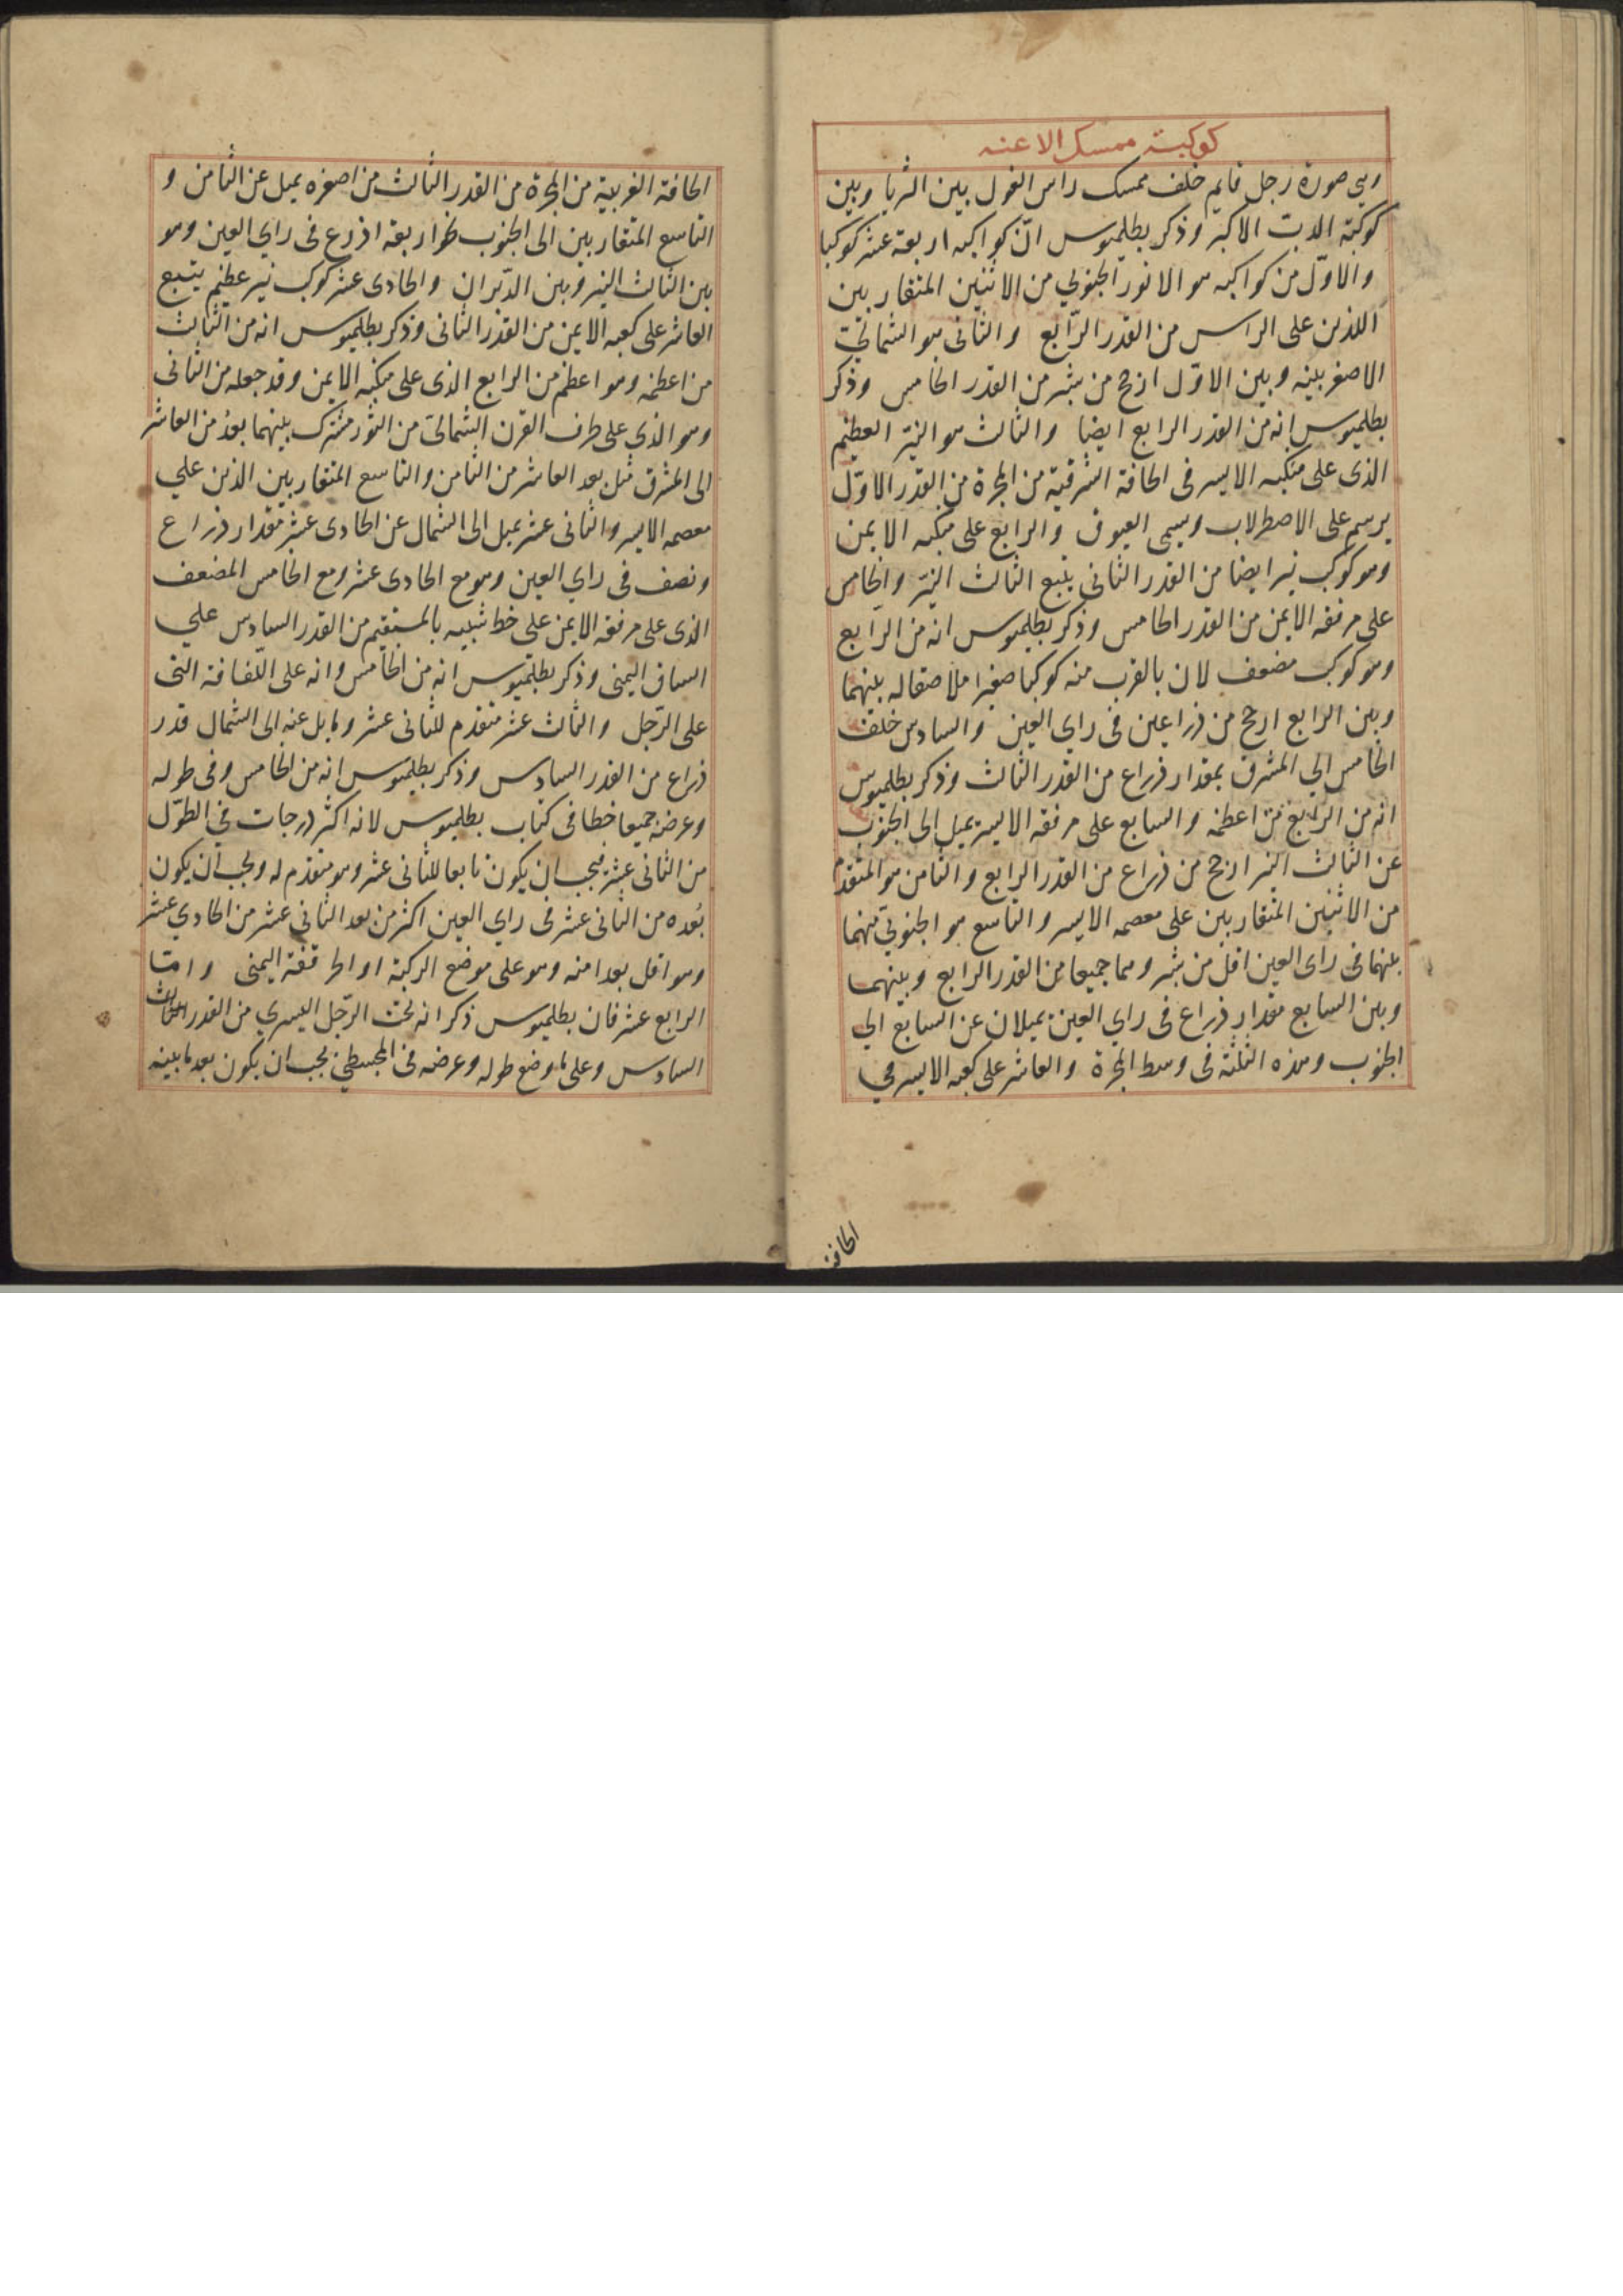 كوكبة ممسك الاعنه
وهي صورة رجل قايم خلف ممسك راس الغول بين الثريا وبين
كوكبة الدب الاكبر وذكر بطلميوس انّ كواكبه اربعة عشر كوكبا
والاوّل من كواكبه هو الانور الجنوبي من الاثنين المتقاربين
اللذين على الراس من القدر الرّابع والثانى هو الشمالىّ
الاصغر بينه وبين الاوّل ارجح من شبر من القدر الخامس وذكر
بطلميوس انه من القدر الرابع ايضا والثالث هو النيّر العظيم
الذى على منكبه الايسر فى الحافة الشرقية من المجرة من القدر الاوّل
يرسم على الاصطرلاب ويسمى العيوق والرابع على منكبه الايمن
وهو كوكب نير ايضا من القدر الثانى يتبع الثالث النيّر والخامس
على مرفقه الايمن من القدر الخامس وذكر بطلميوس انه من الرّابع
وهو كوكب مضعف لان بالقرب منه كوكبا صغيرا ملاصقا له بينهما
وبين الرابع ارجح من ذراعين فى راى العين والسادس خلف
الخامس الي المشرق بمقدار ذراع من القدر الثالث وذكر بطلميوس
انه من الرّابع من اعظمه والسابع على مرفقه الايسر يميل الى الجنوب
عن الثالث النير ارجح من ذراع من القدر الرابع والثامن هو المتقدم
من الاثنين المتقاربين على معصمه الايسر والتاسع هو الجنوبىّ منهما
بينهما فى راى العين اقل من شبر وهما جميعا من القدر الرابع وبينهما
وبين السابع مقدار ذراع فى راي العين يميلان عن السابع الي
الجنوب وهذه الثلثة فى وسط المجرة والعاشر على كعبه الايسر في
الحافة
الحافة الغربية من المجرة من القدر الثالث من اصغره يميل عن الثامن و
التاسع المتقاربين الى الجنوب نحو اربعة اذرع فى راي العين وهو
بين الثالث النير وبين الدّبران والحادى عشر كوكب نير عظيم يتبع
العاشر على كعبه الايمن من القدر الثانى وذكر بطلميوس انه من الثالث
من اعظمه وهو اعظم من الرابع الذى على منكبه الايمن وقد جعله من الثانى
وهو الذى على طرف القرن الشمالىّ من الثور مشترك بينهما بعدُ من العاشر
الى المشرق مثل بعد العاشر من الثامن والتاسع المتقاربين الذين علي
معصمه الايسر والثانى عشر يميل الى الشمال عن الحادى عشر مقدار ذراع
ونصف فى راي العين وهو مع الحادى عشر ومع الخامس المضعف
الذى على مرفقه الايمن على خط شبيه بالمستقيم من القدر السادس علي
الساق اليمنى وذكر بطلميوس انه من الخامس وانه على اللّفافة التى
على الرّجل والثالث عشر متقدم للثانى عشر ومايل عنه الى الشمال قدر
ذراع من القدر السادس وذكر بطلميوس انه من الخامس وفى طوله
وعرضه جميعا خطا فى كتاب بطلميوس لانه اكثر درجات في الطوّل
من الثانى عشر فيجب ان يكون تابعا للثانى عشر وهو متقدم له ويجب ان يكون
بُعده من الثانى عشر فى راي العين اكثر من بعد الثانى عشر من الحادي عشر
وهو اقل بعدا منه وهو على موضع الركبة او الحرقفة اليمنى وامّا
الرابع عشر فان بطلميوس ذكر انه تحت الرّجل اليسري من القدر
السادس وعلى ما وضع طوله وعرضه فى المجسطي يجب ان يكون بعد ما بينه